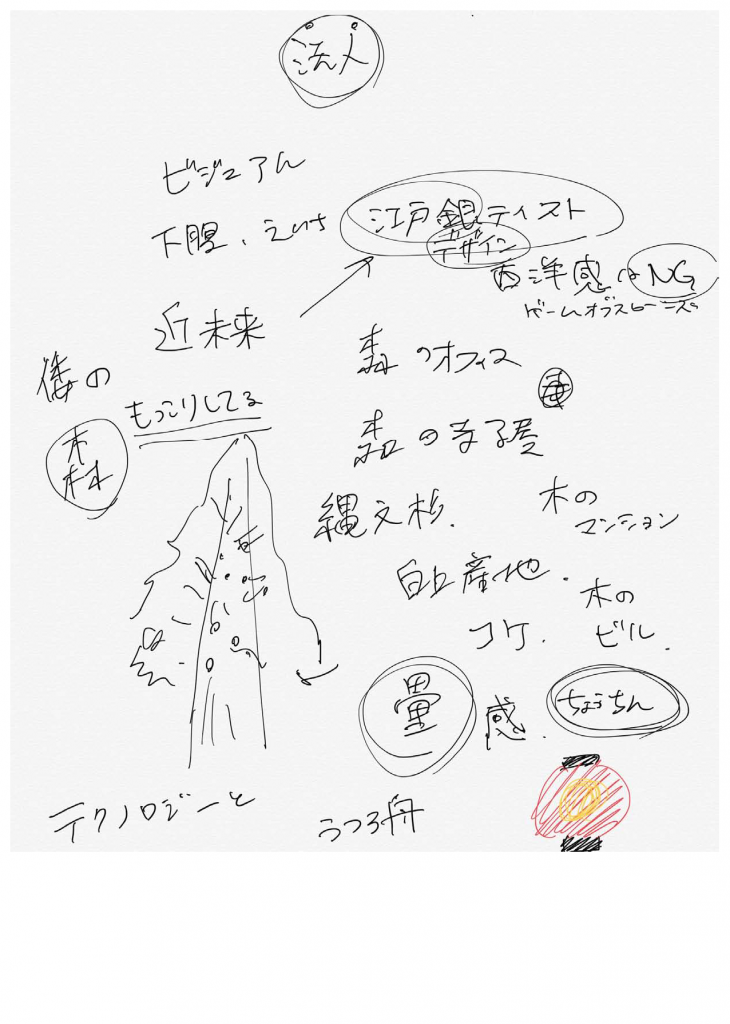 法人
ビジュアル
下腹、えいち
江戸銀テイスト
デザイン
西洋感はNG
ゲームオブスローンズ
近未来
倭の
森
もっこりしてる
森のオフィス
森の寺子屋
縄文杉.
木の
マンション
白上産地.
コケ.
木の
ビル.
畳感.
ちょうちん
テクノロジーと
うつろ舟